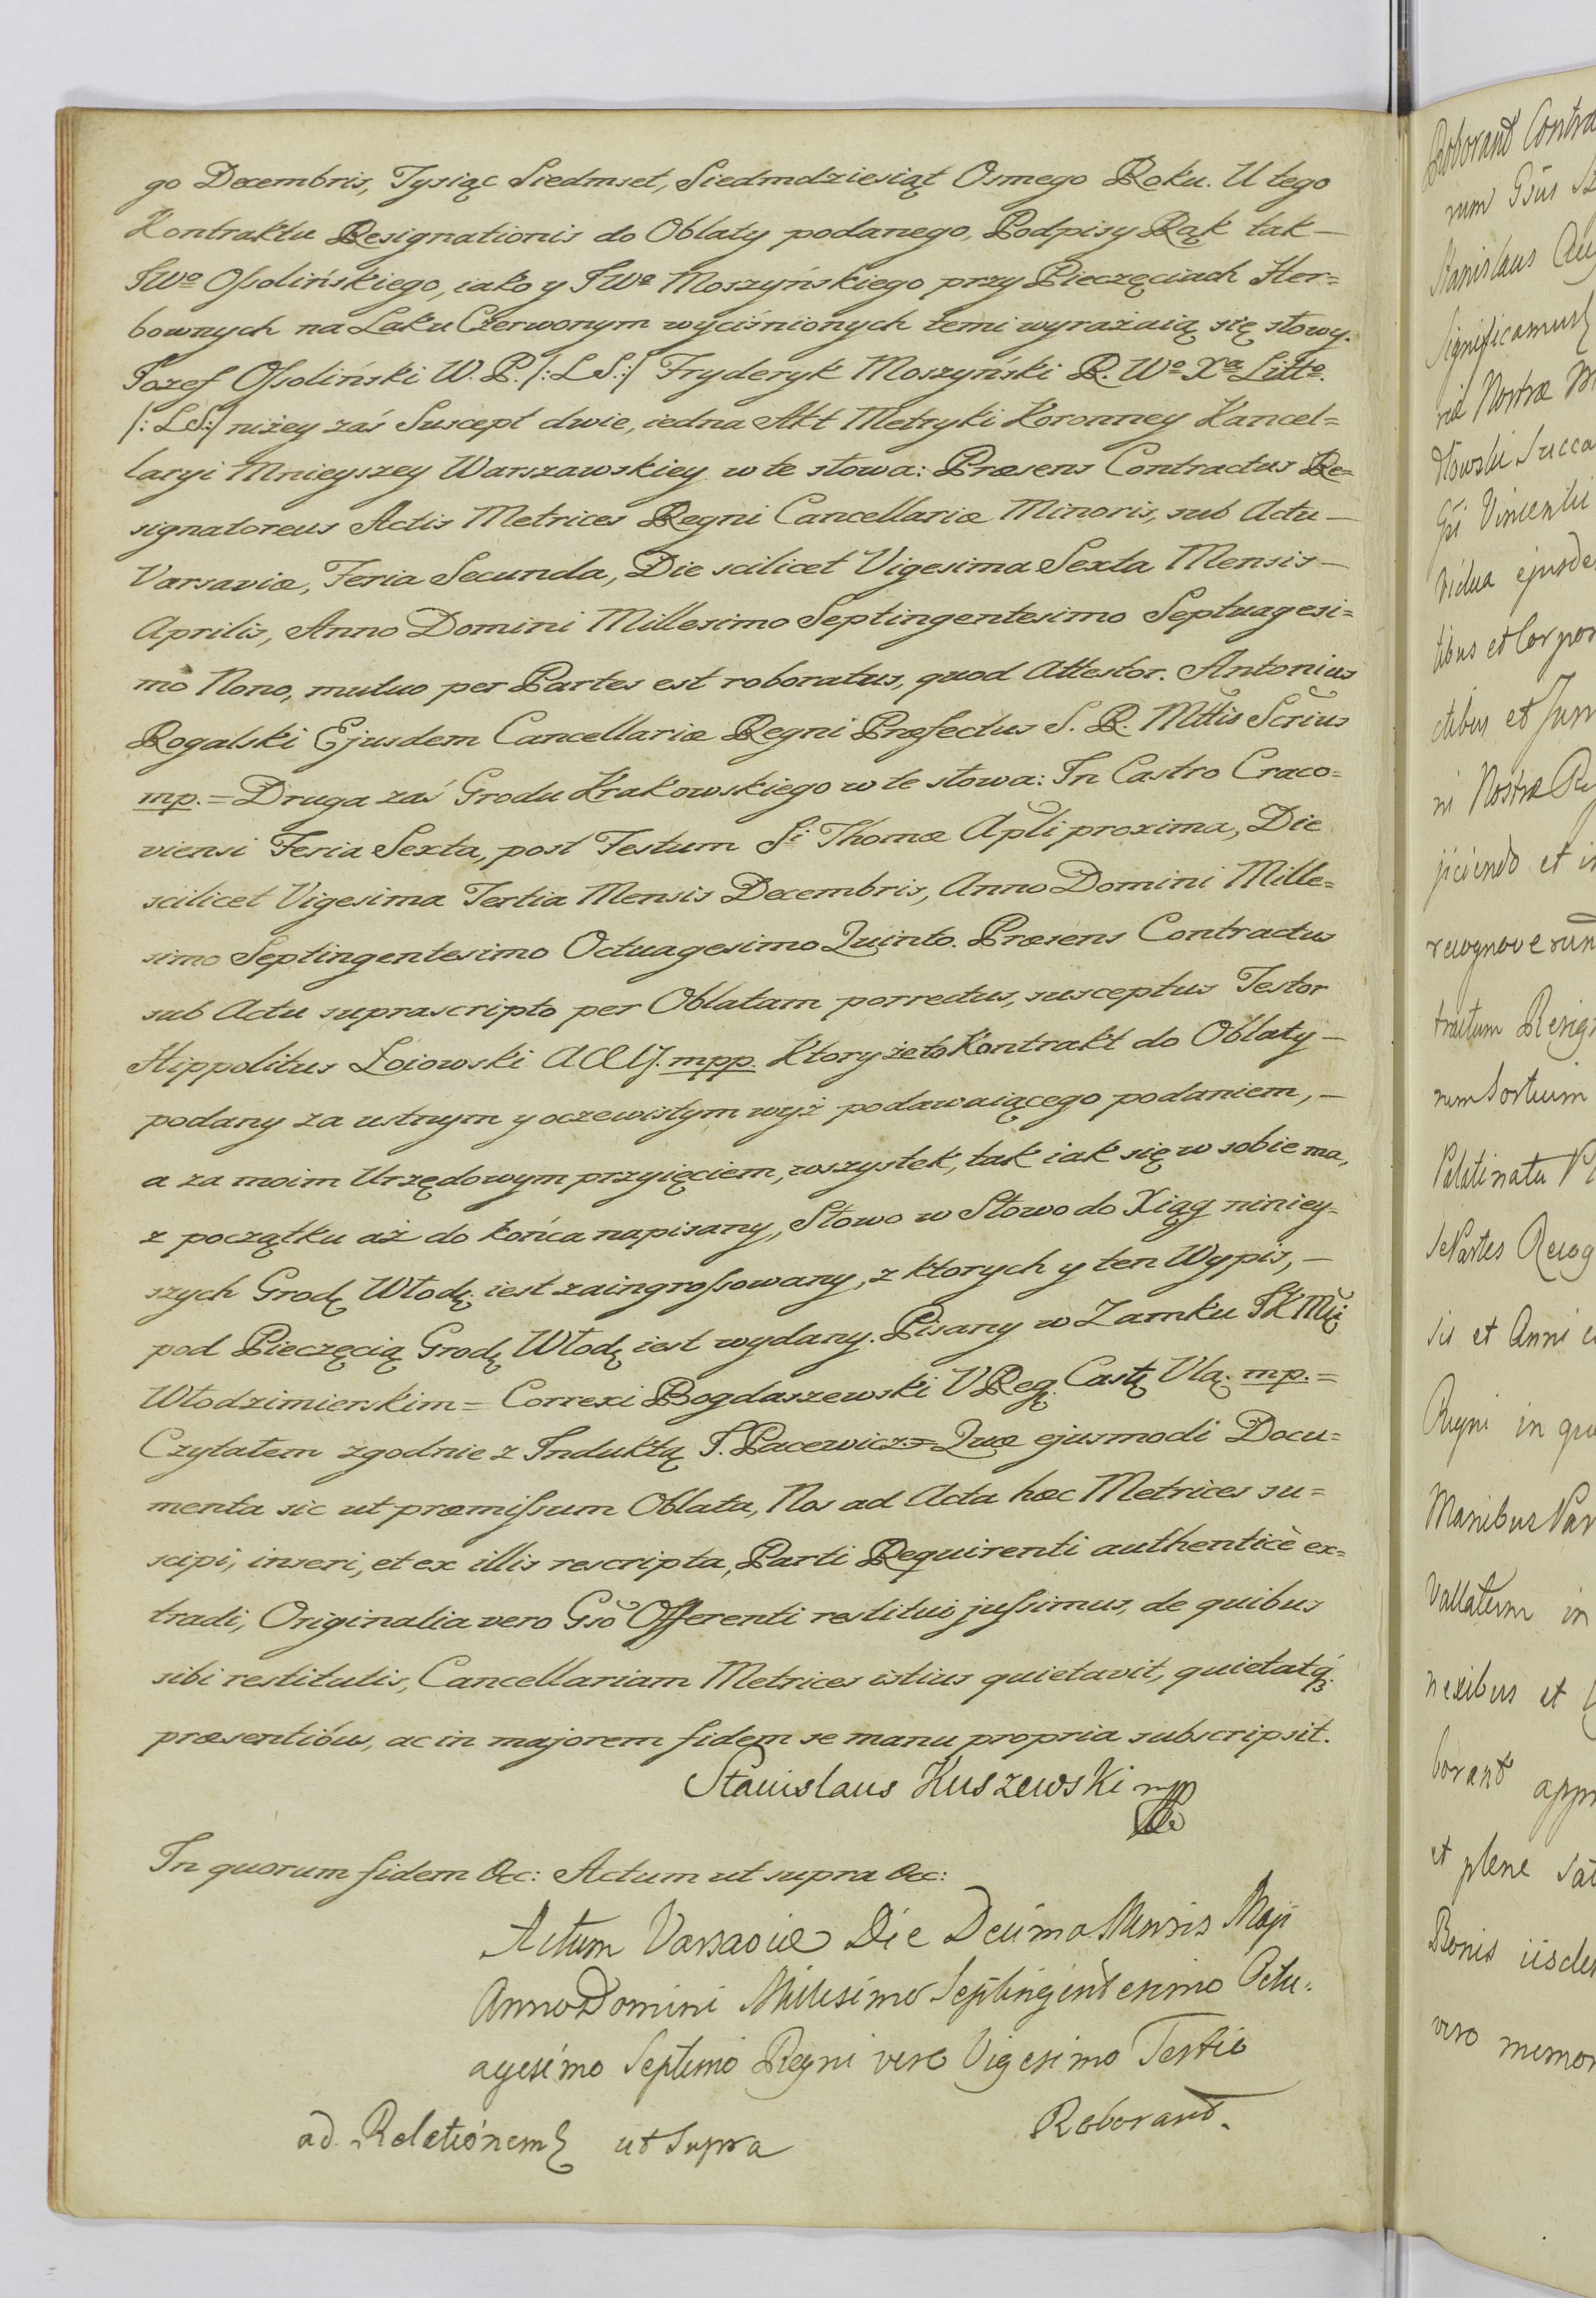 go Decembris, Tysiąc Siedmset, Siedmdziesiąt Osmego Roku. U tego
Kontraktu Resignationis do Oblaty podanego, Podpisy Rąk tak —
JWº Ossolińskiego, iako y JWº Moszyńskiego przy Pieczęciach Her=
bownych na Laku Czerwonym wyciśnionych temi wyrażaią się słowy.
Jozef Ossoliński W. P. /: L S :/ Fryderyk Moszyński R. Wº Xª Littº.
/: L S :/ niżey zaś Suscept dwie, iedna Akt Metryki Koronney Kancel=
laryi Mnieyszey Warszawskiey w te słowa: Præsens Contractus Re=
signatoreus Actis Metrices Regni Cancellariæ Minoris, sub Actu —
Varsaviæ, Feria Secunda, Die scilicet Vigesima Sexta Mensis —
Aprilis, Anno Domini Millesimo Septingentesimo Septuagesi=
mo Nono, mutuo per Partes est roboratus, quod Attestor. Antonius
Rogalski Ejusdem Cancellariæ Regni Præfectus S. R. Mttis Scrius
mp. = Druga zaś Grodu Krakowskiego w te słowa: In Castro Craco=
viensi Feria Sexta, post Festum Si Thomæ Apli proxima, Die
scilicet Vigesima Tertia Mensis Decembris, Anno Domini Mille=
simo Septingentesimo Octuagesimo Quinto. Præsens Contractus
sub Actu suprascripto per Oblatam porrectus, susceptus Testor
Hippolitus Łoiowski mpp. Ktory że to Kontrakt do Oblaty —
podany za ustnym y oczewistym wyż podawaiącego podaniem, —
a za moim Urzędowym przyięciem, wszystek, tak iak się w sobie ma,
z początku aż do końca napisany, Słowo w Słowo do Xiąg niniey=
szych Grodę Włodę: iest zaingrossowany, z ktorych y ten Wypis, —
pod Pieczęcią Grodę Włodę iest wydany. Pisany w Zamku JKMci
Włodzimierskim = Correxi Bogdaszewski VReg. Castę Vla. mp. =
Czytałem zgodnie z Induktą J. Pacewicz = Quæ ejusmodi Docu=
menta sic ut præmissum Oblata, Nos ad Acta hæc Metrices su=
scipi, inseri, et ex illis rescripta, Parti Requirenti authenticè ex=
tradi, Originalia vero Gsō Offerenti restitui jussimus, de quibus
sibi restitutis, Cancellariam Metrices istius quietavit, quietatq;
præsentibus, ac in majorem fidem se manu propria subscripsit.
Stanislaus Kuszewski mpp
In quorum fidem &c: Actum ut supra &c:
Actum Varsaviæ Die Decima Mensis Maji
Anno Domini Millesimo Septingentesimo Octu=
agesimo Septimo Regni vero Vigesimo Tertio
Roborand.
ad Relationem ut Supra
Roborand Contra
Stanislaus Au
Significamus
Nostræ
Vincentii
Vidua ejusde
tibus et Corpor
ctibus et
ni Nostræ Re
jiciendo et in
recognoverun
Resig
Palatinatu
Recog
sis et Anni
Regni in
Manibus
Vallatum in
nexibus et
borand
et plene
Bonis iisde
vero memor